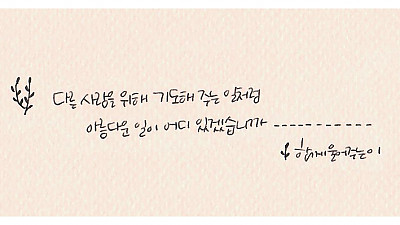 다른 사람을 위해 기도해 주는 일처럼
아름다운 일이 어디 있겠습니까 -----------
함께 울어주는 이